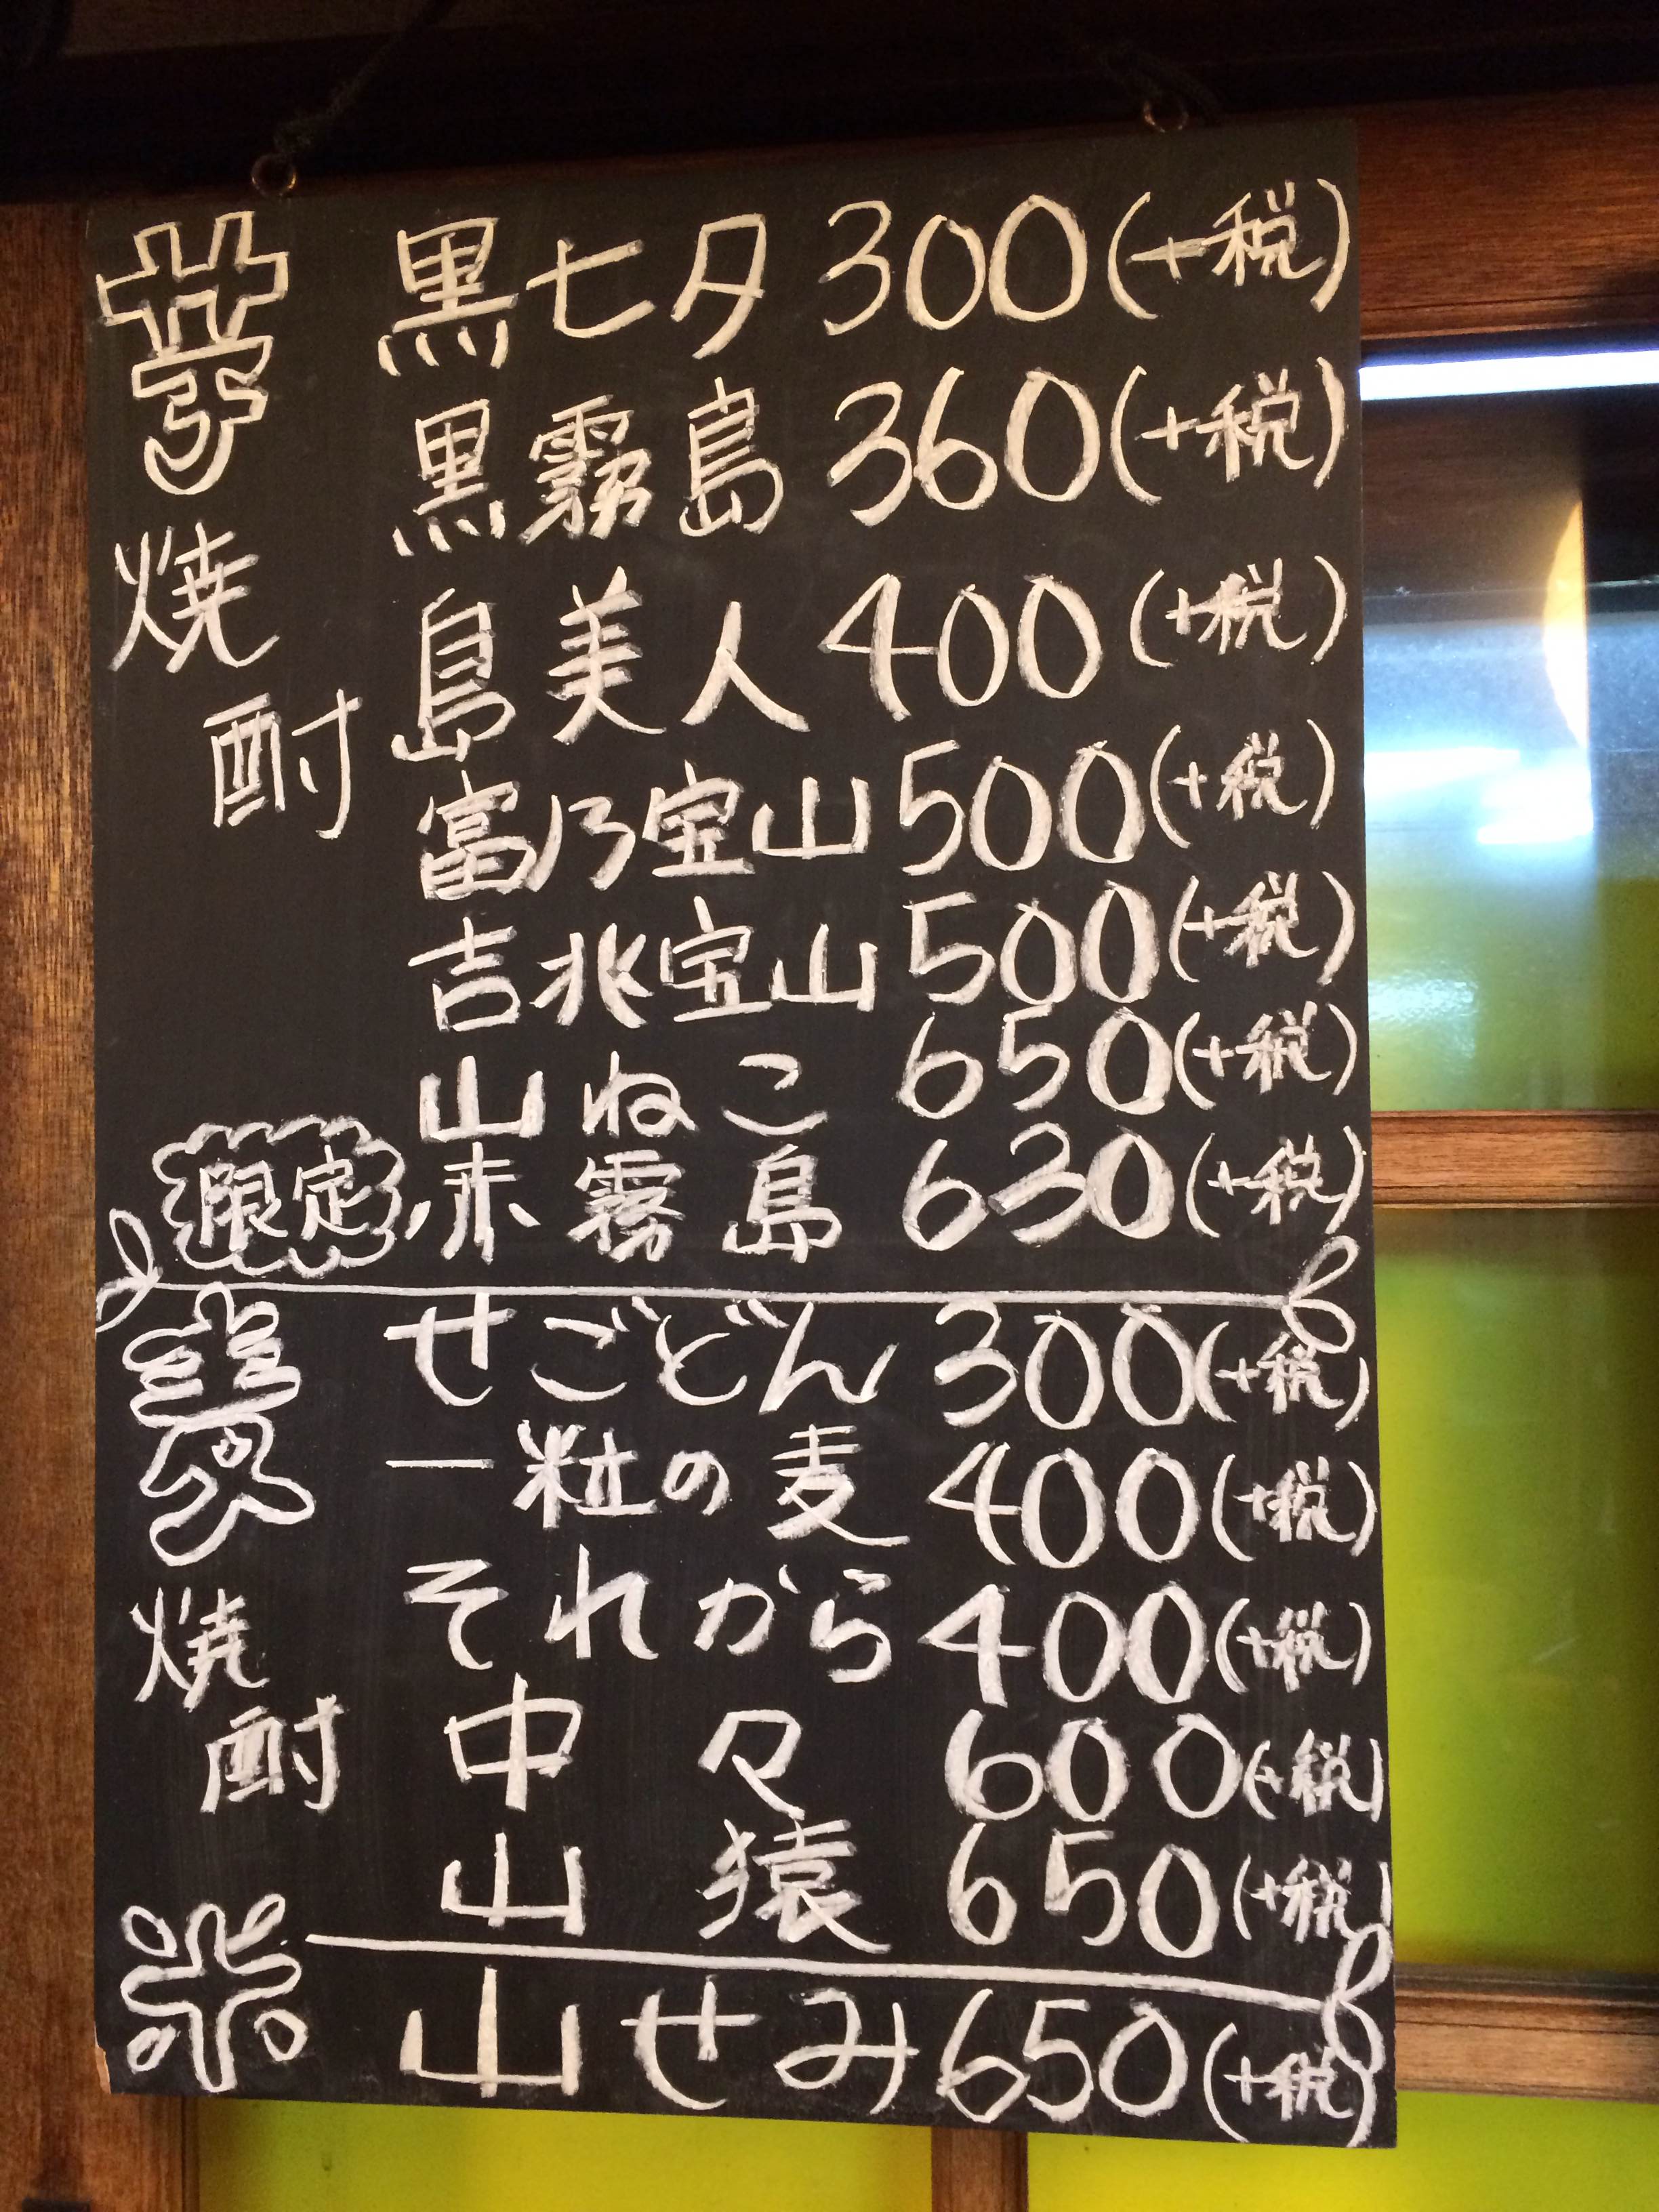 芋焼酎
黒七夕 300(+税)
黒霧島 360(+税)
島美人 400(+税)
富乃宝山 500(+税)
吉兆宝山 500(+税)
山ねこ 650(+税)
限定 赤霧島 630(+税)
麦焼酎
せごどん 300(+税)
一粒の麦 400(+税)
それから 400(+税)
中々 600(+税)
山猿 650(+税)
米
山せみ 650(+税)